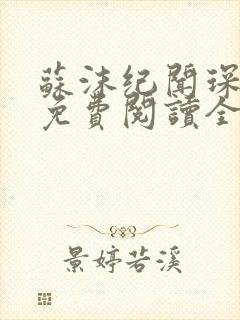 蘇沫紀聞琛
免費閱讀全
景婷若溪